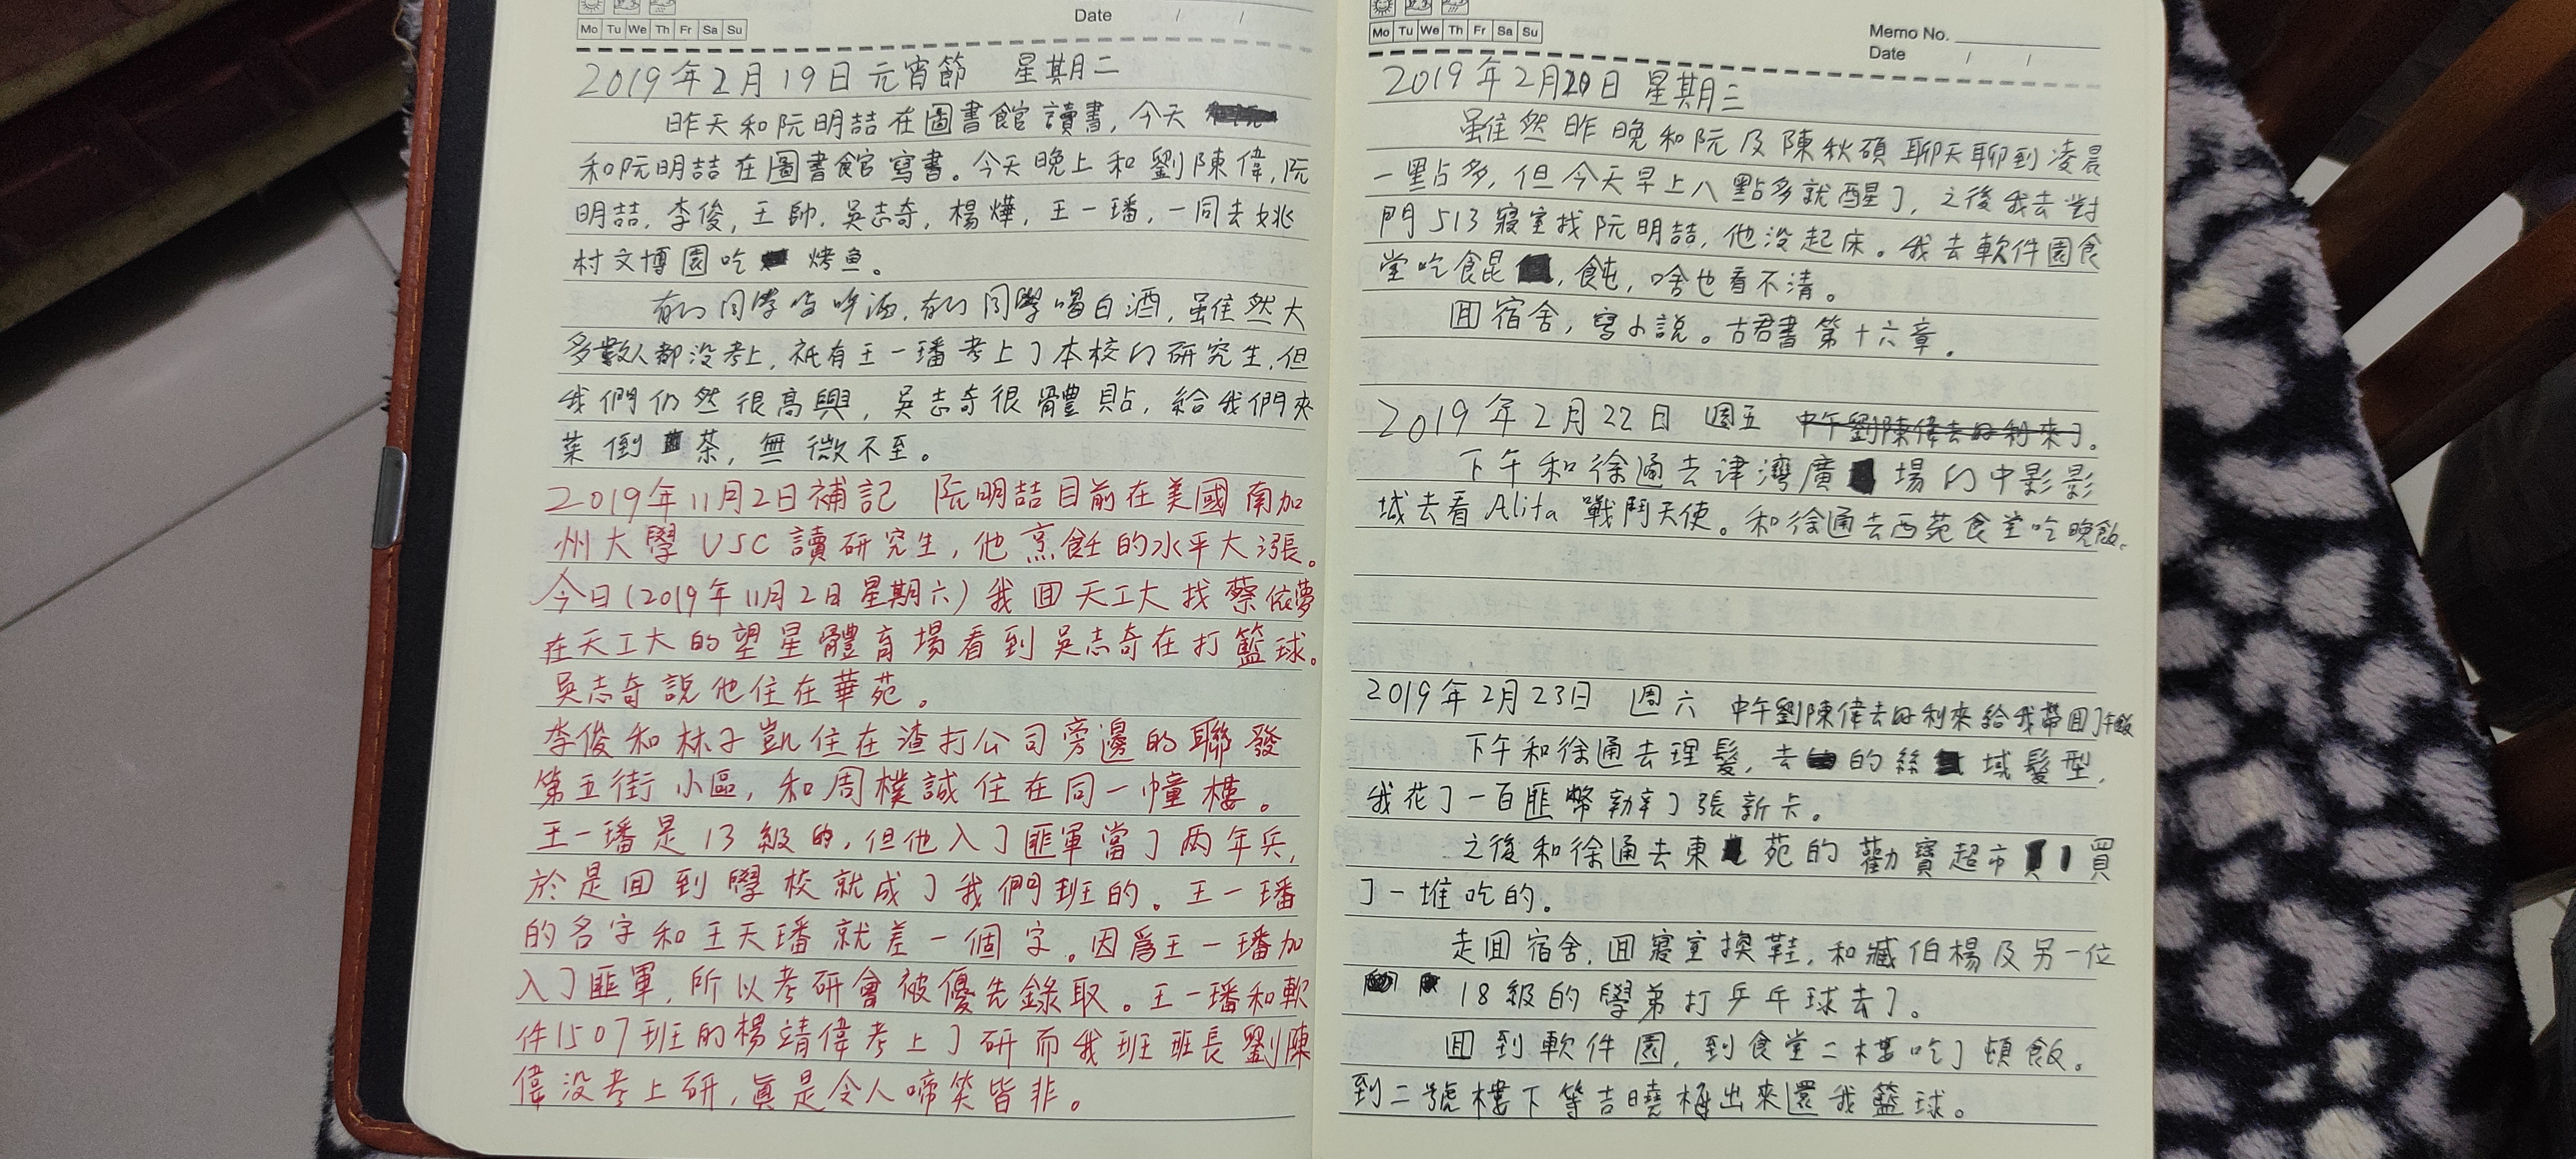 Mo Tu We Th Fr Sa Su
Date / /
2019年2月19日元宵節 星期二
昨天和阮明喆在圖書館讀書,今天
和阮明喆在圖書館寫書。今天晚上和劉陳偉,阮
明喆,李俊,王帥,吳志奇,楊燁,王一璠,一同去姚
村文博園吃烤鱼。
有的同學喝啤酒,有的同學喝白酒,雖然大
多數人都没考上,祇有王一璠考上了本校的研究生,但
我們仍然很高興,吳志奇很體貼,給我們夾
菜倒茶,無微不至。
2019年11月2日補記 阮明喆目前在美國南加
州大學USC讀研究生,他烹飪的水平大漲。
今日(2019年11月2日星期六)我回天工大找蔡依夢
在天工大的望星體育場看到吳志奇在打籃球。
吳志奇說他住在華苑。
李俊和林子凱住在渣打公司旁邊的聯發
第五街小區,和周樸誠住在同一幢樓。
王一璠是13級的,但他入了匪軍當了两年兵,
於是回到學校就成了我們班的。王一璠
的名字和王天璠就差一個字。因爲王一璠加
入了匪軍,所以考研會被優先錄取。王一璠和軟
件1507班的楊靖偉考上了研而我班班長劉陳
偉没考上研,真是令人啼笑皆非。
Mo Tu We Th Fr Sa Su
Memo No.
Date / /
2019年2月20日 星期三
雖然昨晚和阮及陳秋碩聊天聊到凌晨
一點多,但今天早上八點多就醒了,之後我去對
門513寢室找阮明喆,他没起床。我去軟件園食
堂吃餛,飩,啥也看不清。
回宿舍,寫小說。古君書第十六章.
2019年2月22日 週五 中午劉陳偉去好利來了。
下午和徐通去津灣廣場的中影影
城去看Alita戰鬥天使。和徐通去西苑食堂吃晚飯。
2019年2月23日 週六 中午劉陳偉去好利來給我帶回了午飯
下午和徐通去理髮,去的絲域髮型,
我花了一百匪幣辦了張新卡。
之後和徐通去東苑的勸寶超市買
了一堆吃的。
走回宿舍,回寢室換鞋,和臧伯楊及另一位
18級的學弟打乒乓球去了。
回到軟件園,到食堂二樓吃了頓飯。
到二號樓下等吉曉極出來還我籃球。